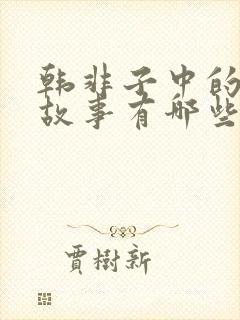 韩非子中的
故事有哪些
賈樹新